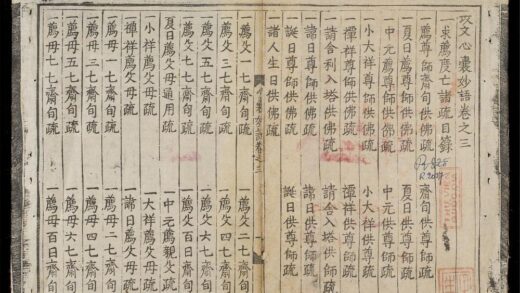 攻文心囊妙語卷之三
一求薦度亡諸疏目錄
一薦尊師齋旬供佛疏 齋旬供尊師疏
一夏日薦尊師供佛疏 夏日供尊師疏
一中元薦尊師供佛疏 中元供尊師疏
一小大祥尊師供佛疏 小大祥供尊師疏
一禫祥尊師供佛疏 禫祥供尊師疏
一請舍利入塔供佛疏 請舍入塔供師疏
一諱日尊師供佛疏 諱日供尊師疏
一誕日尊師供佛疏 誕日供尊師疏
一諸人生日供佛疏
心囊妙語卷之三
一薦父一七齋旬疏 一薦父二七齋旬疏
一薦父三七齋旬疏 一薦父四七齋旬疏
一薦父五七齋旬疏 一薦父六七齋旬疏
一薦父七七齋旬疏 一薦父百日齋旬疏
夏日薦父母通用疏 一中元薦親父疏
小祥薦父母疏 一大祥薦父母疏
禫祥薦父母疏 一諱日薦父母疏
一薦母一七齋旬疏 一薦母二七齋旬疏
一薦母三七齋旬疏 一薦母四七齋旬疏
一薦母五七齋旬疏 一薦母六七齋旬疏
一薦母七七齋旬疏 一薦母百日齋旬疏